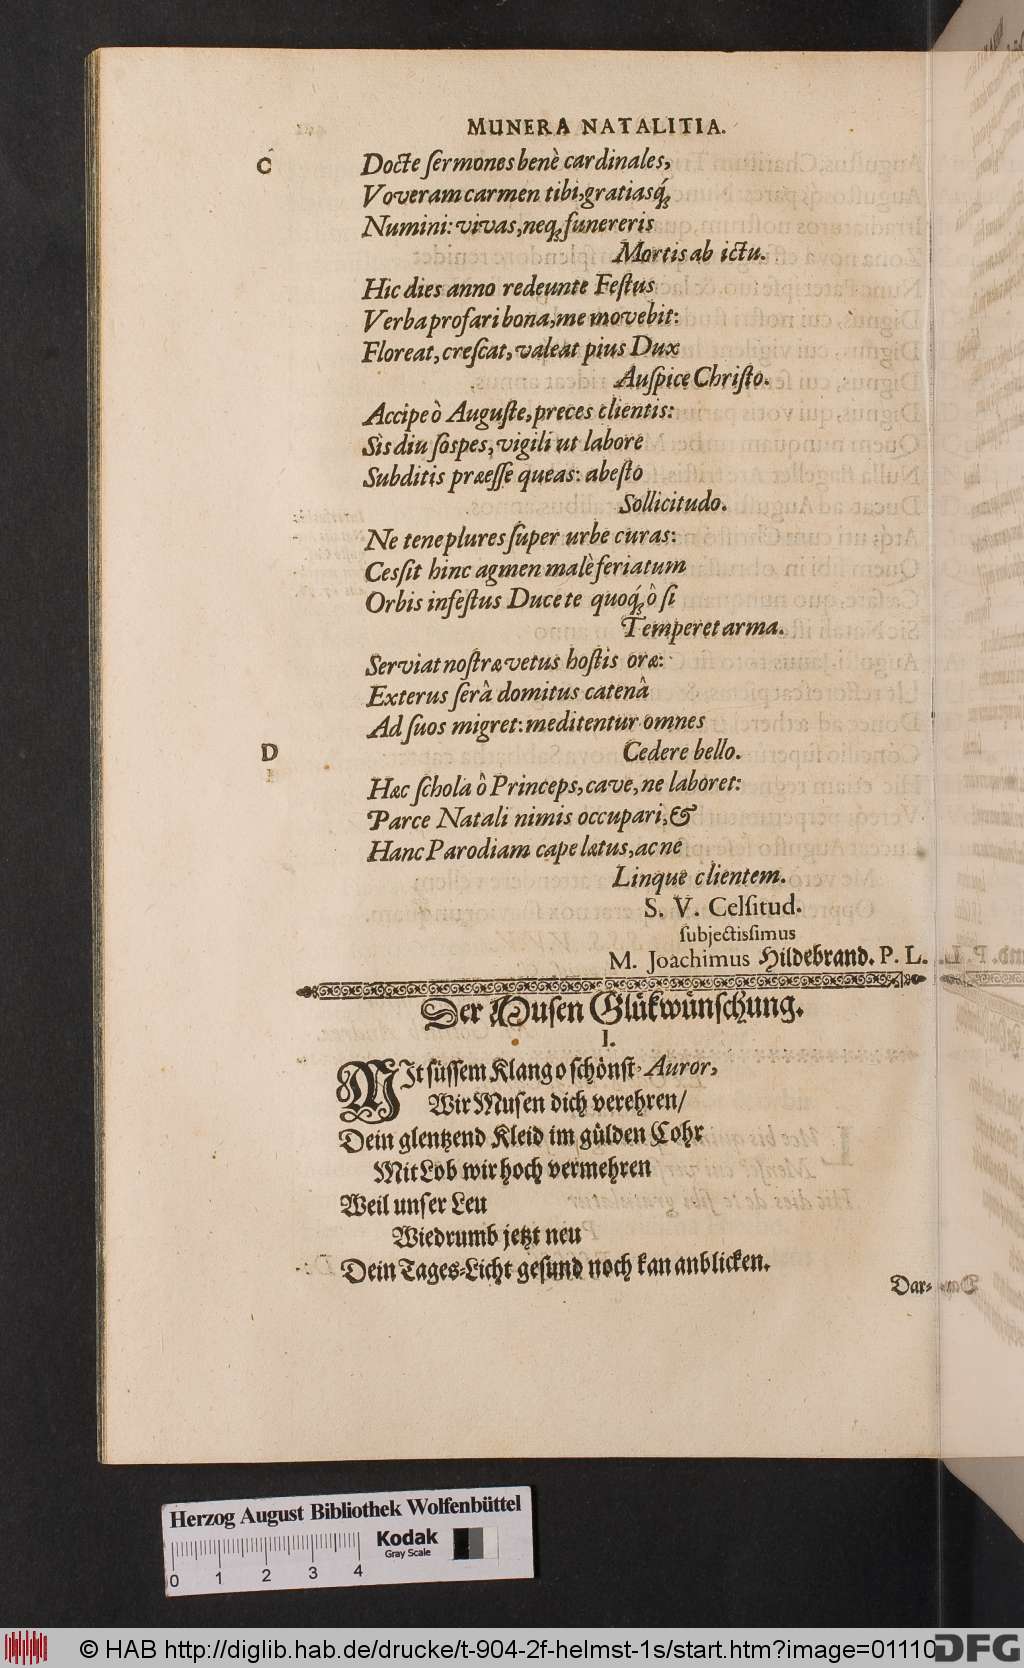 MUNERA NATALITIA.
C Docte ſermones benè cardinales,
Voveram carmen tibi, gratiasq́;
Numini: vivas, neq; funereris
Mortis ab ictu.
Hic dies anno redeunte Feſtus
Verba profari bona, me movebit:
Floreat, creſcat, valeat pius Dux
Auſpice Chriſto.
Accipe ò Auguſte, preces clientis:
Sis diu ſospes, vigili ut labore
Subditis præeſſe queas: abeſto
Sollicitudo.
Ne tene plures ſuper urbe curas:
Ceſſit hinc agmen malè feriatum
Orbis infeſtus Duce te quoq́; ò ſi
Temperet arma.
Serviat noſtræ vetus hoſtis oræ:
Exterus ſerâ domitus catenâ
Ad ſuos migret: meditentur omnes
D Cedere bello.
Hæc ſchola ô Princeps, cave, ne laboret:
Parce Natali nimis occupari, &
Hanc Parodiam cape lætus, ac ne
Linque clientem.
S. V. Celſitud.
ſubjectisſimus
M. Joachimus Hildebrand. P. L.
Der Muſen Glükwünſchung.
I.
MIt ſüſſem Klang o ſchönſt, Auror,
Wir Muſen dich verehren/
Dein glentzend Kleid im gülden Cohr
Mit Lob wir hoch vermehren
Weil unſer Leu
Wiedrumb jetzt neu
Dein Tages-Licht geſund noch kan anblicken.
Dar-
Herzog August Bibliothek Wolfenbüttel
Kodak
Gray Scale
0 1 2 3 4
© HAB http://diglib.hab.de/drucke/t-904-2f-helmst-1s/start.htm?image=01110
DFG